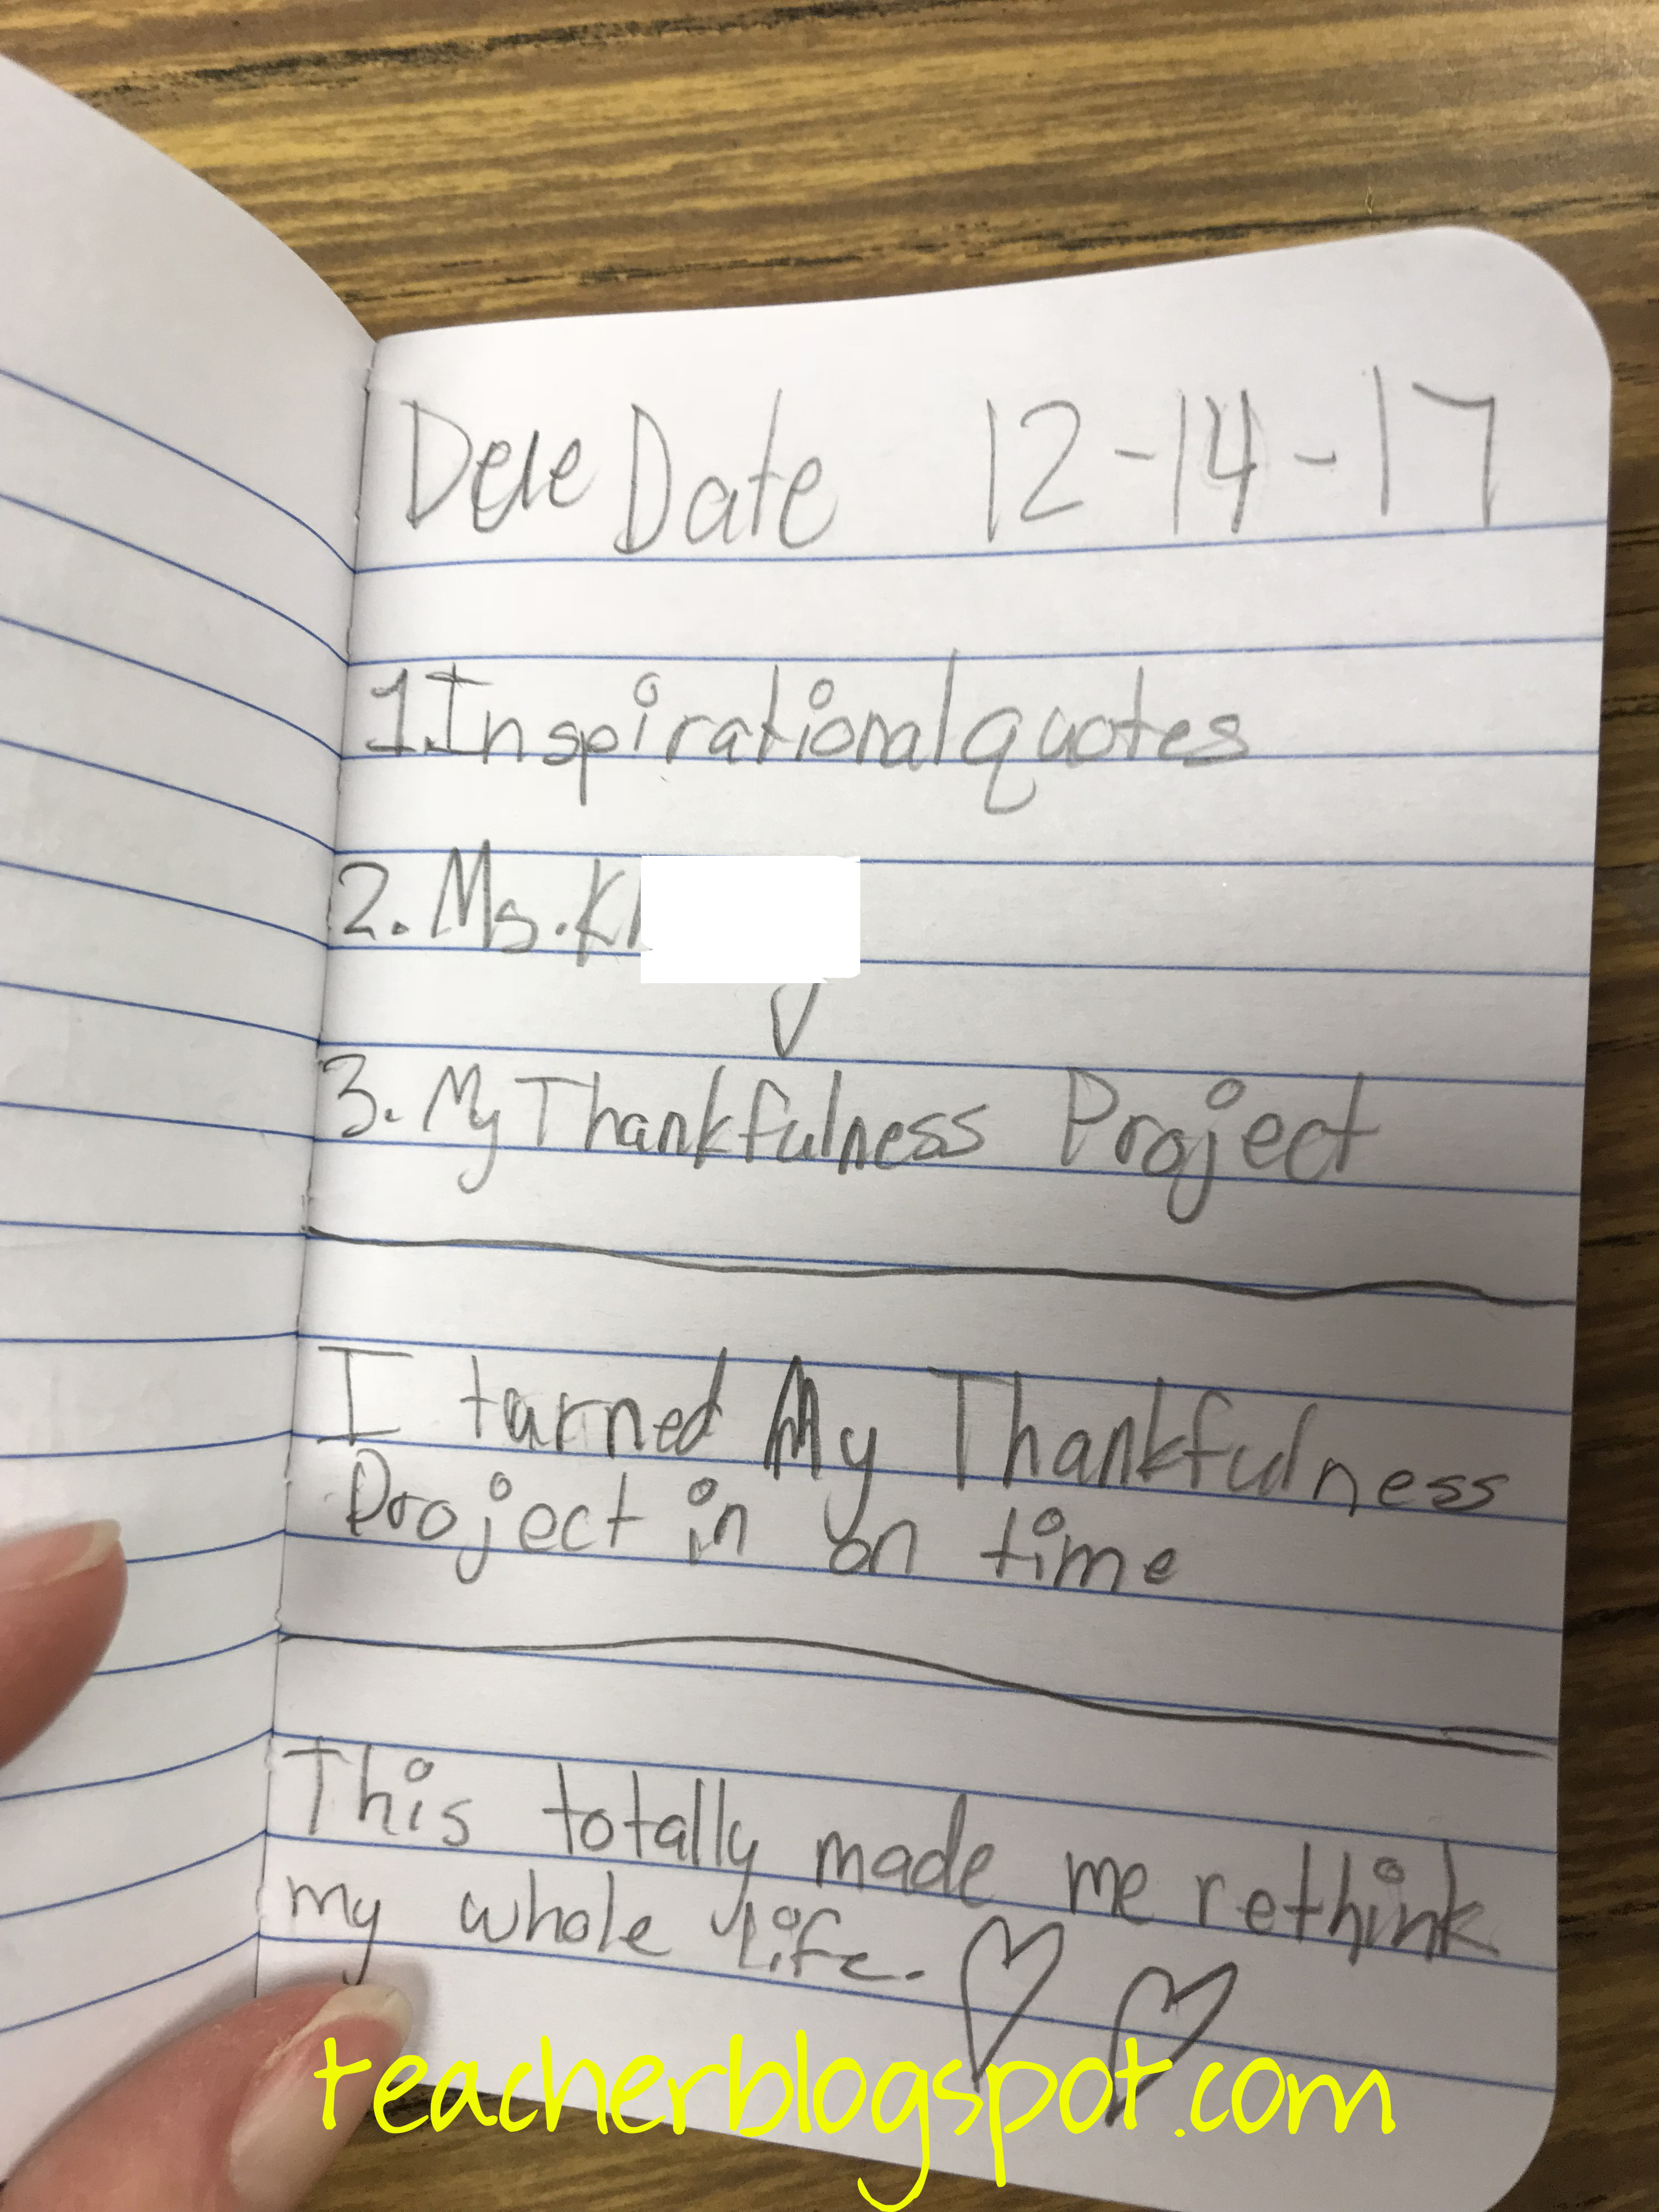 Due Date 12-14-17
1. Inspirational quotes
2. Ms. Kl
3. My Thankfulness Project
I turned My Thankfulness
Project in on time
This totally made me rethink
my whole life.
teacherblogspot.com